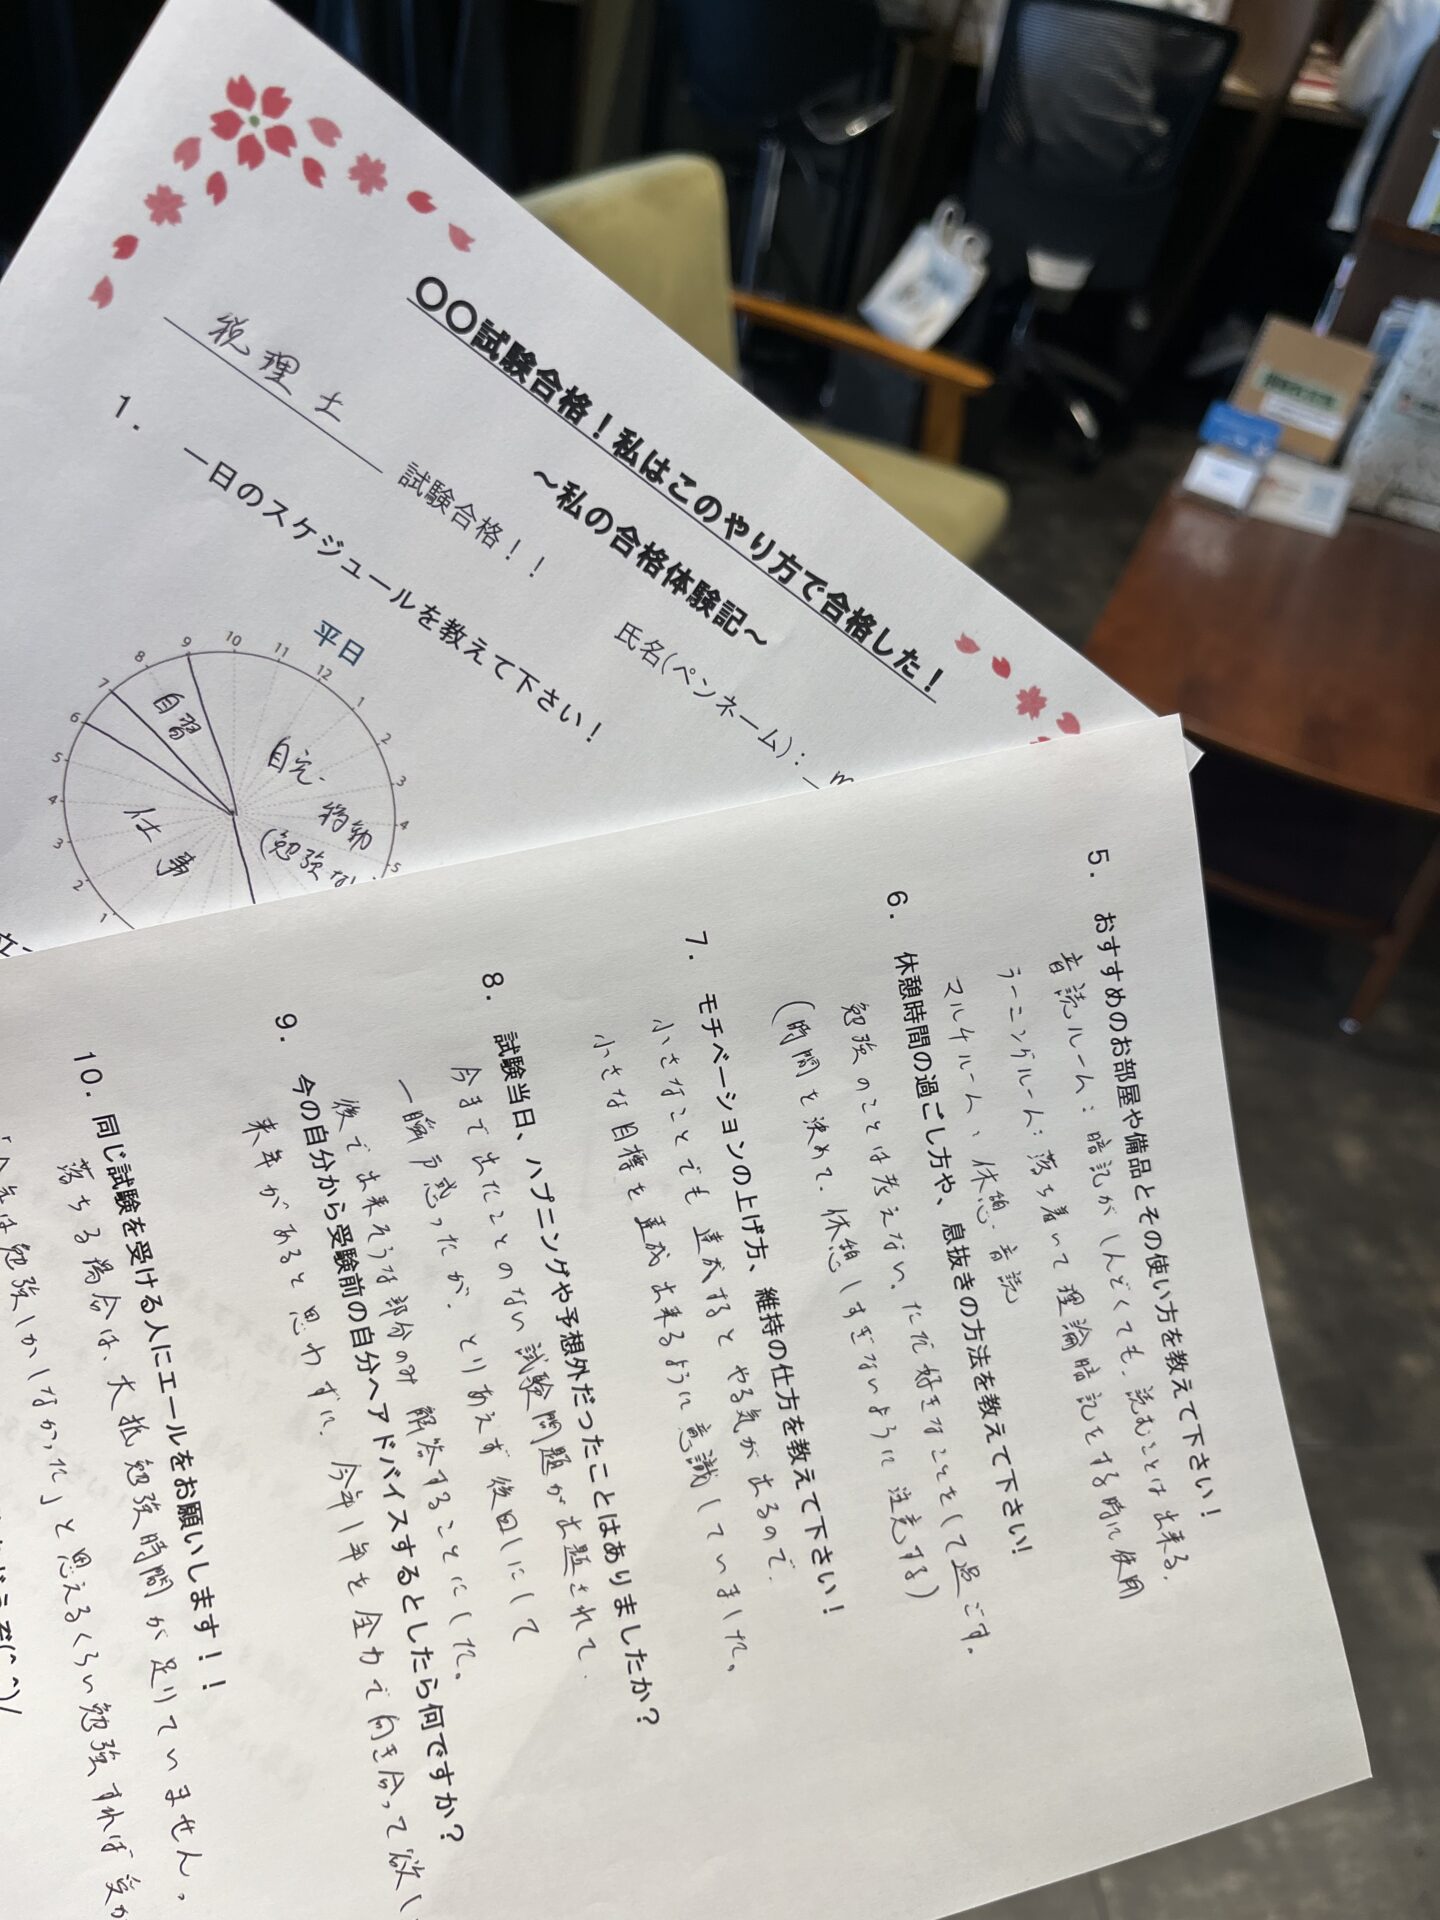 〇〇試験合格！私はこのやり方で合格した！
～私の合格体験記～
税理士 試験合格！！
氏名(ペンネーム)：
1. 一日のスケジュールを教えて下さい！
平日
9 10 11 12 1 2 3 4 5
8 7 6 5 4 3 2 1
自習
仕事
移動
(勉強な
5. おすすめのお部屋や備品とその使い方を教えて下さい！
音読ルーム：暗記がしんどくても、読むことは出来る。
ラーニングルーム：落ち着いて理論暗記をする時に使用
マルチルーム、休憩、音読
6. 休憩時間の過ごし方や、息抜きの方法を教えて下さい！
勉強のことは考えない、ただ好きなことをして過ごす。
(時間を決めて、休憩しすぎないように注意する)
7. モチベーションの上げ方、維持の仕方を教えて下さい！
小さなことでも達成するとやる気が出るので、
小さな目標を達成出来るように意識していました。
8. 試験当日、ハプニングや予想外だったことはありましたか？
今まで出たことのない試験問題が出題されて、
一瞬戸惑ったが、とりあえず後回しにして
後で出来そうな部分のみ解答することにした。
9. 今の自分から受験前の自分へアドバイスするとしたら何ですか？
来年があると思わずに、今年1年を全力で向き合って欲し
10. 同じ試験を受ける人にエールをお願いします！！
落ちる場合は、大抵勉強時間が足りていません。
は勉強しかしなかった」と思えるくらい勉強すれば受か